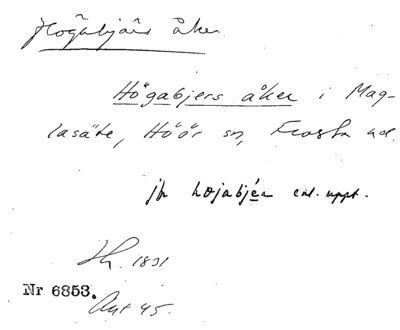 Högabjärs åker.
Högabjers åker i Mag-
lasäte, Höör sn, Frosta hd.
jfr höjabjér enl. uppt.
1831
Nr 6853.
45.